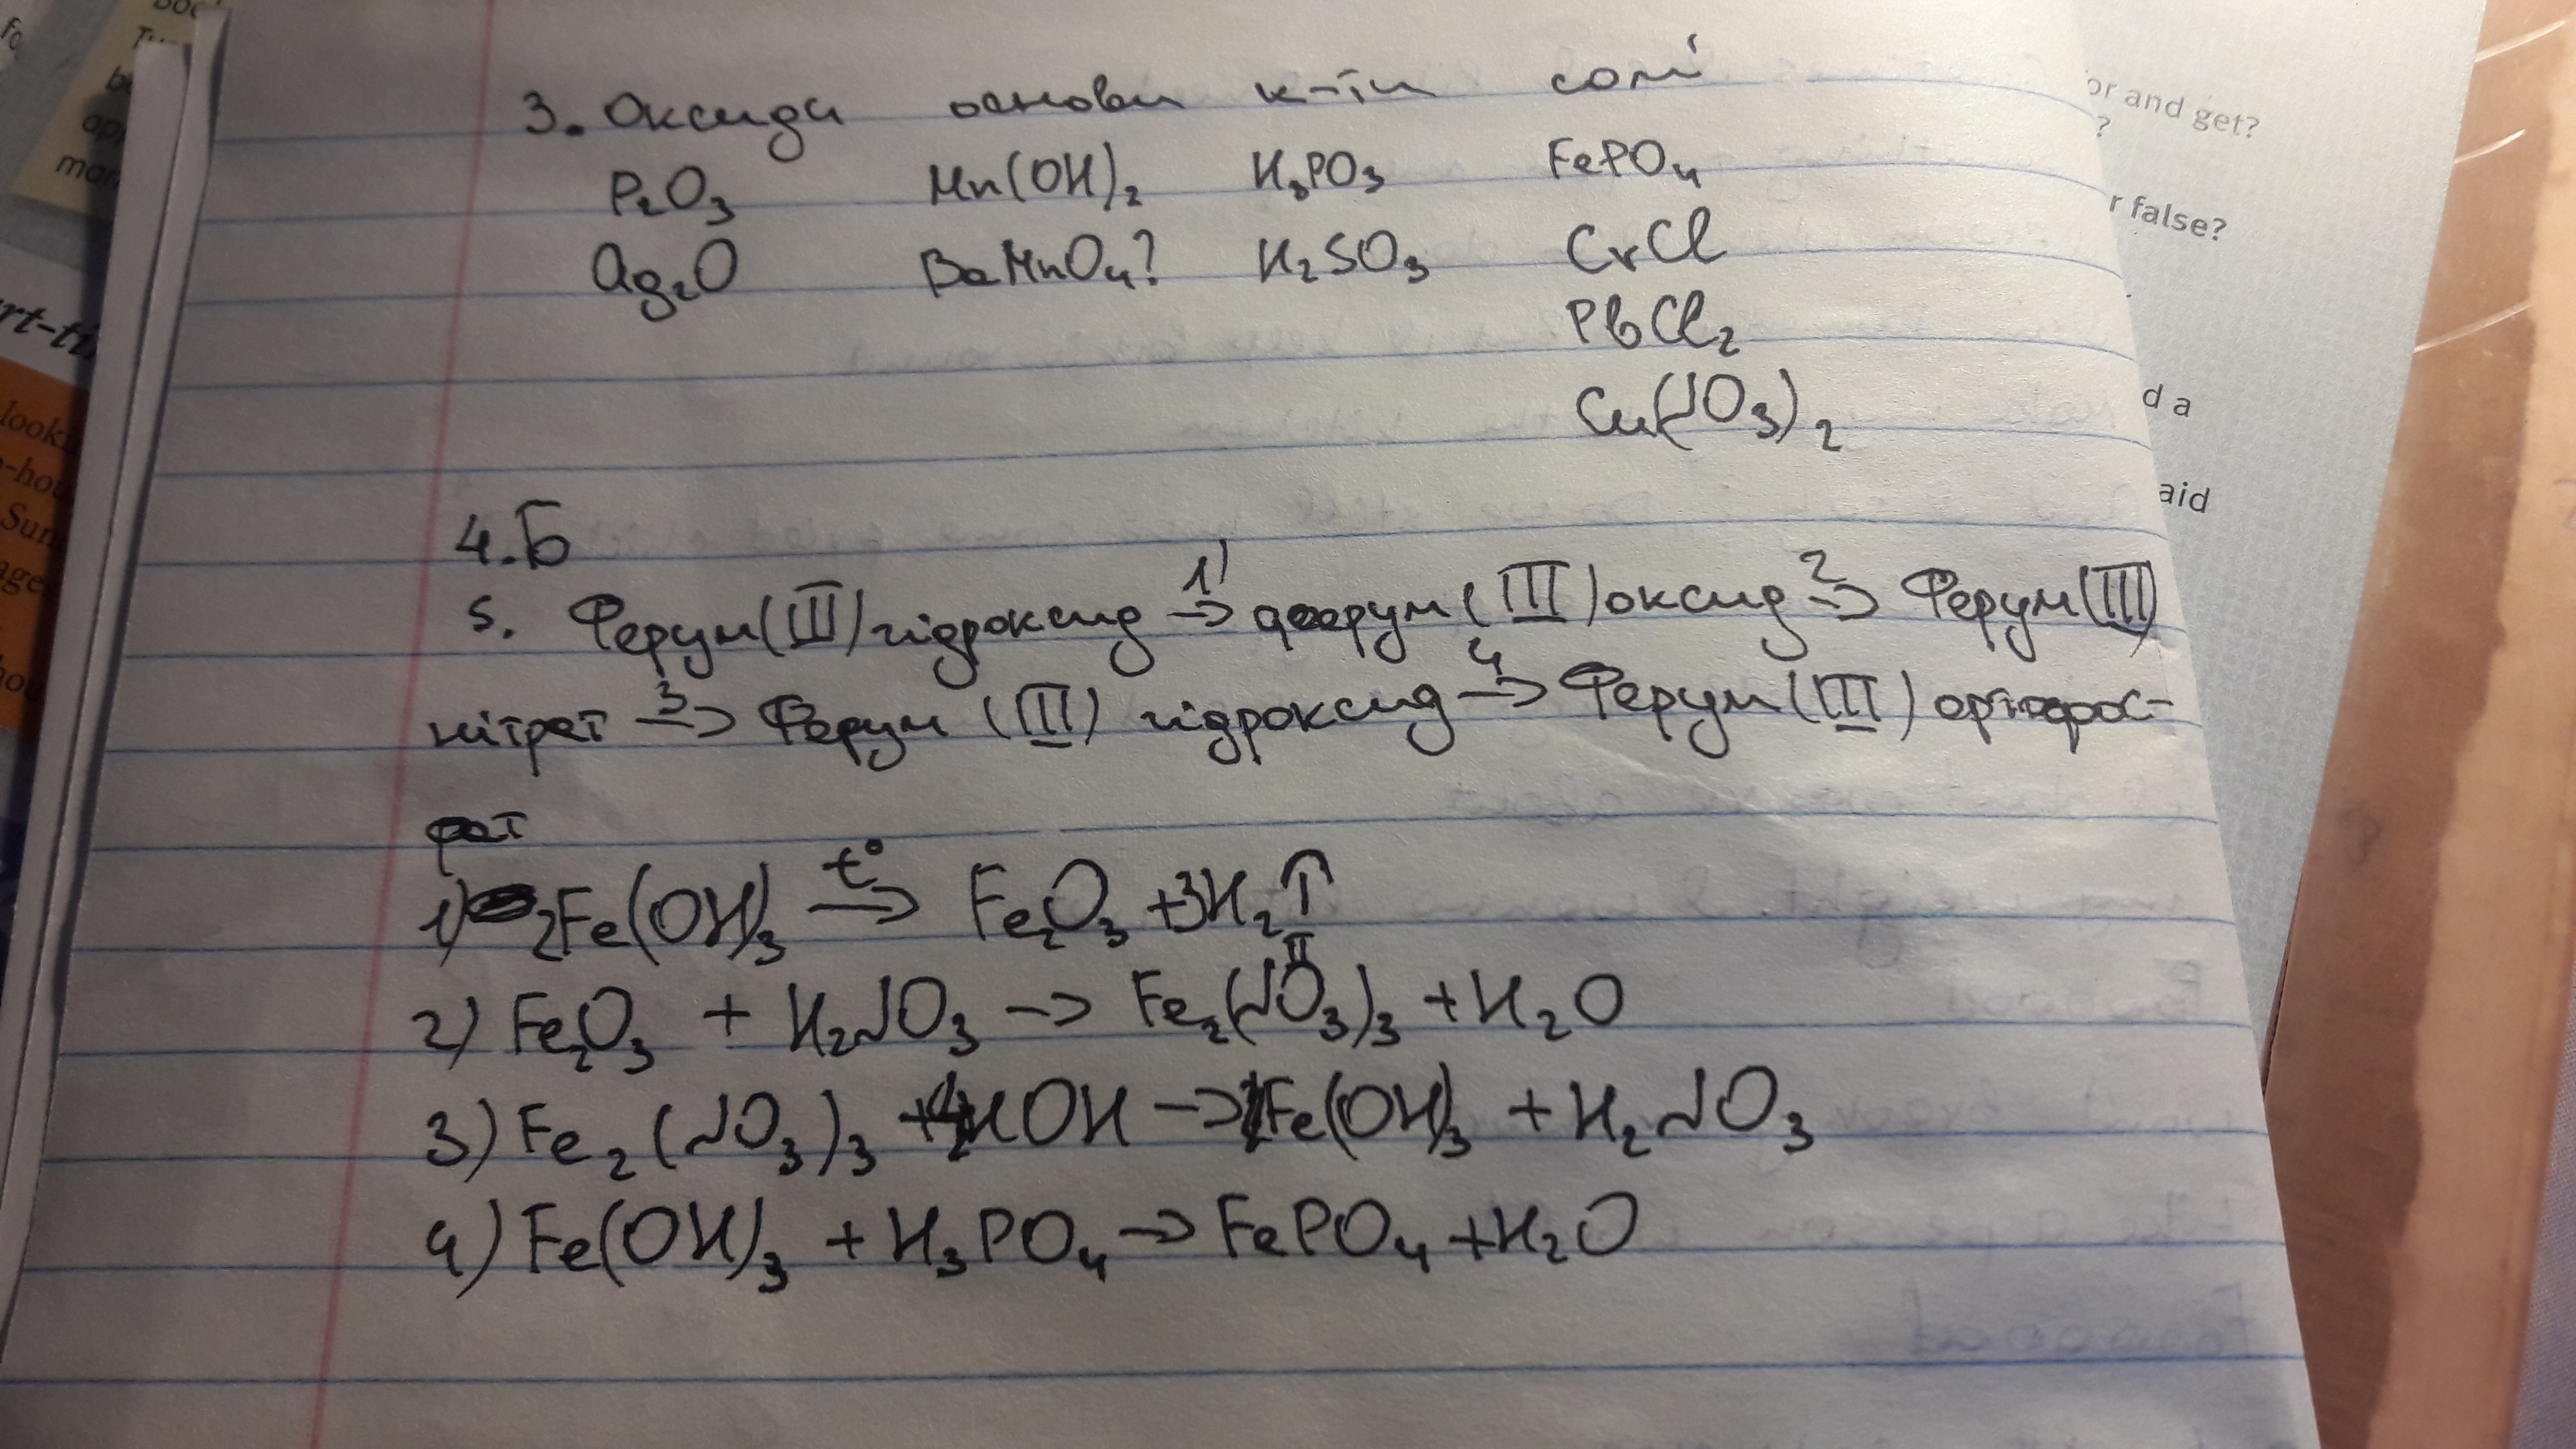 3. Оксиди основи к-ти солі
P₂O₃ Mn(OH)₂ H₃PO₃ FePO₄
Ag₂O BaMnO₄? H₂SO₃ CrCl
PbCl₂
Cu(NO₃)₂
4. Б
5. Ферум(III) гідроксид 1)→ ферум(III) оксид 2→ Ферум(III)
нітрат 3→ Ферум (III) гідроксид 4→ Ферум(III) ортофос-
фат
1) 2Fe(OH)₃ t°→ Fe₂O₃ + 3H₂↑
2) Fe₂O₃ + H₂NO₃ → Fe₂(NO₃)₃ II + H₂O
3) Fe₂(NO₃)₃ + HOH → Fe(OH)₃ + H₂NO₃
4) Fe(OH)₃ + H₃PO₄ → FePO₄ + H₂O
or and get?
?
r false?
d a
aid
rt-ti
looki
-hou
Sun